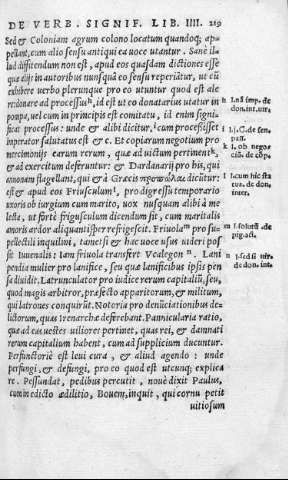 DE VERB. SIGNIF. LIB. IIII. 219
Sed & Coloniam agrum colono locatum quandoq; ap-
pellant, cum alio sensu antiqui ea uoce utantur. Sanè il-
lud diffitendum non est, apud eos quasdam dictiones esse
quæ alijs in autoribus nunquã eo sensu reperiãtur, ut cũ
exhibere uerbo plerunque pro eo utuntur quod est ale
re: donare ad processum, id est ut eo donatarius utatur in
pompa, uel cum in principis est comitatu, id enim signi-
ficat processus: unde & alibi dicitur, cum processisset
imperator salutatus est & c. Et copiarum negotium pro
mercimonijs earum rerum, quæ ad uictum pertinent,
& ad exercitum deferuntur: & Dardanarij pro his, qui
annonam flagellant, qui & à Græcis dicũtur:
est & apud eos Friusculum, pro digressu temporario
uxoris ob iurgium cum marito, uox nusquam alibi à me
lecta, ut fortè frigusculum dicendum sit, cum maritalis
amoris ardor aliquantisper refrigescit. Friuola pro su-
pellectili inquilini, tametsi & hac uoce usus uideri pos
sit Iuuenalis: iam friuola transfert Vcalegon. Lani
pendia mulier pro lanifica, seu quæ lanificibus ipsis pen
sa diuidit. Latrunculator pro iudice rerum capitaliũ, seu,
quod magis arbitror, præfecto apparitorum, & militum,
qui latrones conquirũt. Notoria pro denuciationibus de-
lictorum, quas Irenarchæ deferebant. Pannicularia ratio,
quæ ad eas uestes uiliores pertinet, quas rei, & damnati
rerum capitalium habent, cum ad supplicium ducuntur.
Perfunctoriè est leui cura, & aliud agendo: unde
perfungi, & defungi, pro eo quod est utcunq; explica
re. Pessundat, pedibus percutit, nouè dixit Paulus,
cum in edicto ædilitio, Bouem, inquit, qui cornu petit
uitiosum
h l.nã imp. de
don.int.uir.
i l.j. C. de sen-
pass.
k l. ob nego
ciũ. de cóp.
l l.cum hic sta
tus. de don.
inter.
m l.solutũ. de
pig. act.
n l. sed si uir.
de don. int.